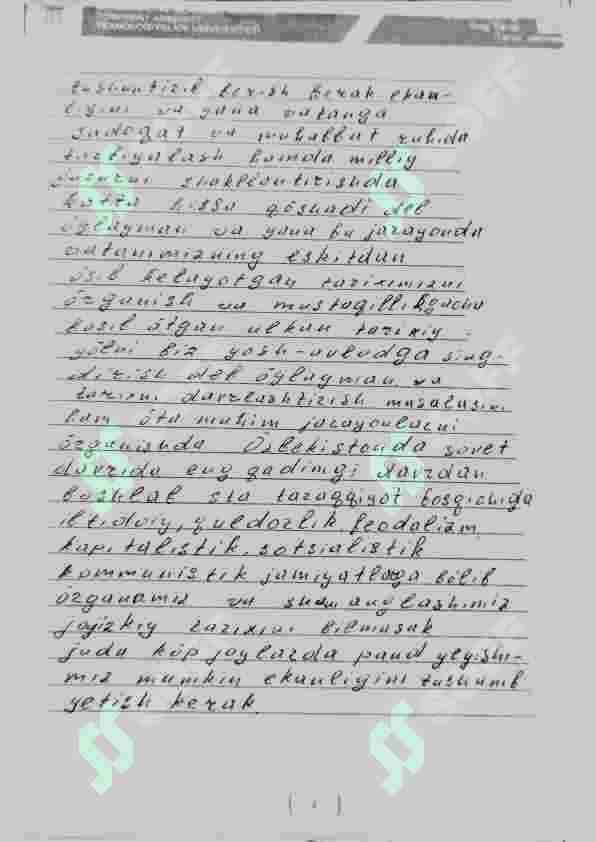 TOSHKENT AXBOROT
TEXNOLOGIYALARI UNIVERSITETI
tushuntirib berish kerak ekan-
ligini va yana vatanga
sadoqat va muhabbat ruhida
tarbiyalash hamda milliy
shakllantirishda
katta hissa qöshadi deb
öylayman va yana bu jarayonda
vatanimizning eskitdan
ösib kelayotgan tariximizni
örganish va mustaqillikgacha
bosib ötgan ulkan tarixiy
yölni biz yosh-avlodga sing-
dirish deb öylayman va
tarixni davrlashtirish masalasini
ham öta muhim jarayonlarni
örganishda Özbekistonda sovet
davrida eng qadimgi davrdan
boshlab sta taraqqiyot bosqichiga
ibtidoiy, quldorlik, feodalizm,
kapitalistik, sotsialistik
kommunistik jamiyatlarga bölib
örganamiz va shuni anglashimiz
joyizkiy tarixini bilmasak
juda köp joylarda pand yeyishi-
miz mumkin ekanligini tushunib
yetish kerak.